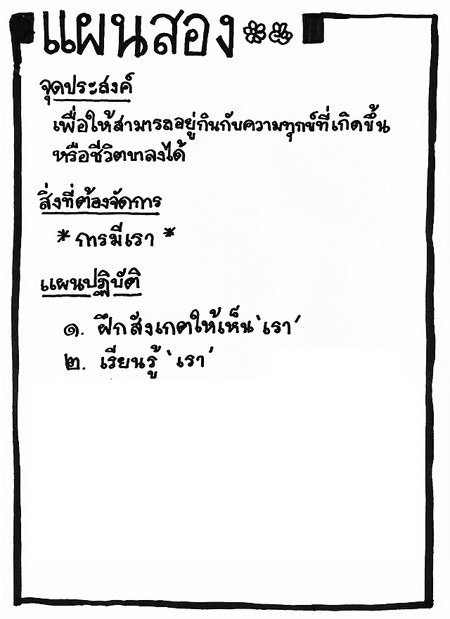 แผนสอง
จุดประสงค์
เพื่อให้สามารถอยู่กินกับความทุกข์ที่เกิดขึ้น
หรือชีวิตขาลงได้
สิ่งที่ต้องจัดการ
* การมีเรา *
แผนปฏิบัติ
๑. ฝึกสังเกตให้เห็น 'เรา'
๒. เรียนรู้ 'เรา'